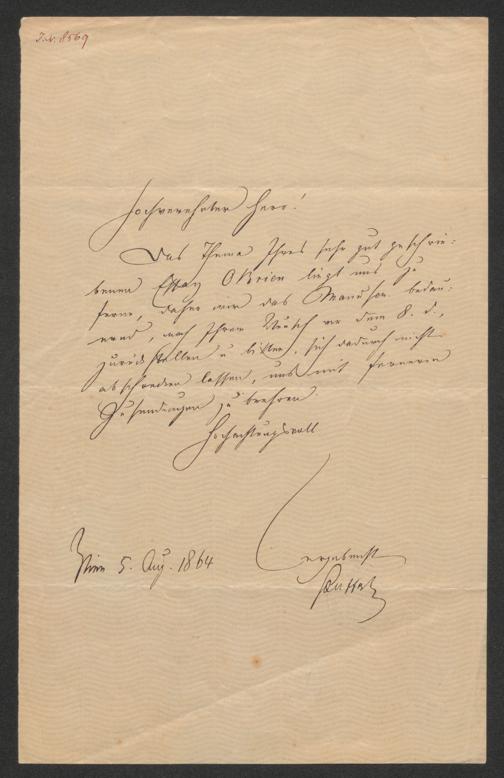 I.N. 8569
Hochverehrter Herr!
Das Thema Ihres sehr gut geschrie-
benen Essay O'Brien liegt uns zu
ferne, daher wir das Manuscr. bedau-
ernd, nach Ihrem Wunsch vor dem 8. d.,
zurückstellen u bitten, sich dadurch nicht
abschrecken lassen, uns mit ferneren
Zusendungen zu beehren.
Hochachtungsvoll
ergebenst
Wien 5. Aug. 1864